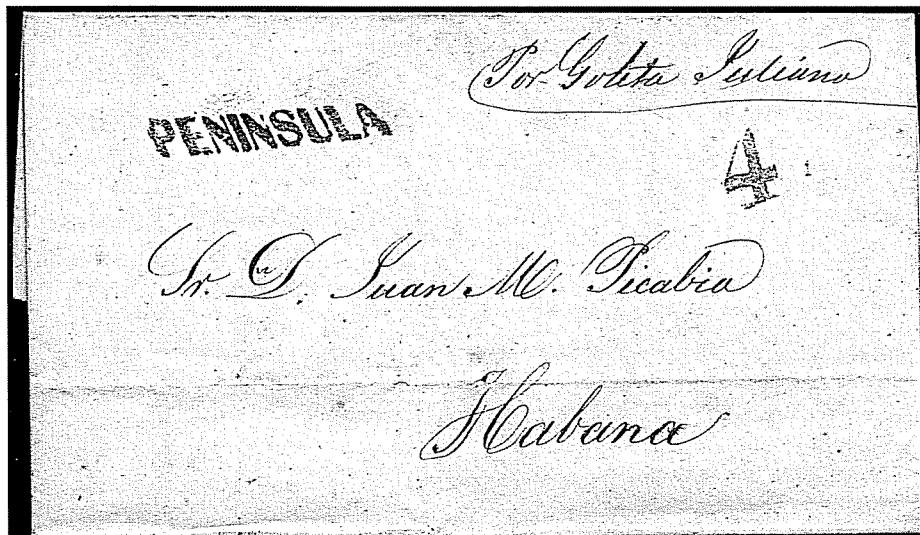 Por Goleta Juliana
PENINSULA
4
Sr. D. Juan M. Picabia
Habana